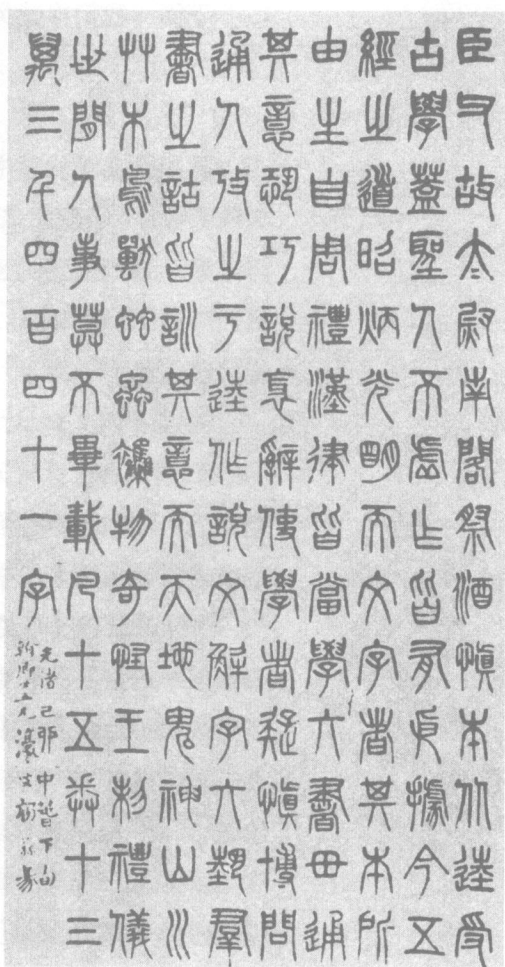 臣父故太尉南閣祭酒慎本从逵受
古學蓋聖人不虛作皆有依據今五
經之道昭炳光明而文字者其本所
由生自周禮漢律皆當學六書毌通
其意恐巧說衺辭使學者疑慎博問
通人攷之于逵作說文解字六藝羣
書之詁皆訓其意而天地鬼神山川
艸木鳥獸䖵蟲襍物奇怪王制禮儀
世間人事莫不畢載凡十五卷十三
萬三千四百四十一字
光緒己卯中春下旬
卿兄濠叟